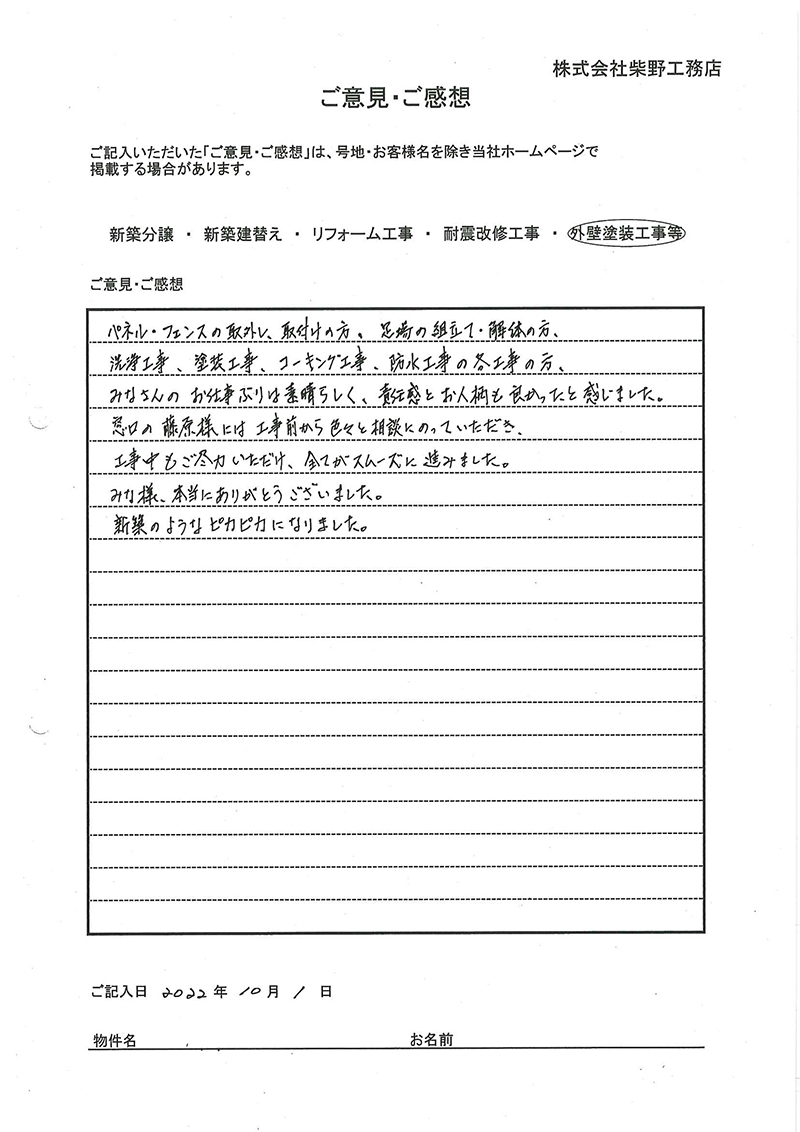 株式会社柴野工務店
ご意見・ご感想
ご記入いただいた「ご意見・ご感想」は、号地・お客様名を除き当社ホームページで
掲載する場合があります。
新築分譲 ・ 新築建替え ・ リフォーム工事 ・ 耐震改修工事 ・ 外壁塗装工事等
ご意見・ご感想
パネル・フェンスの取外し、取付けの方、足場の組立て・解体の方、
洗浄工事、塗装工事、コーキング工事、防水工事の各工事の方、
みなさんのお仕事ぶりは素晴らしく、責任感とお人柄も良かったと感じました。
窓口の藤原様には工事前から色々と相談にのっていただき、
工事中もご尽力いただけ、全てがスムーズに進みました。
みな様、本当にありがとうございました。
新築のようなピカピカになりました。
ご記入日 2022 年 10 月 1 日
物件名 お名前